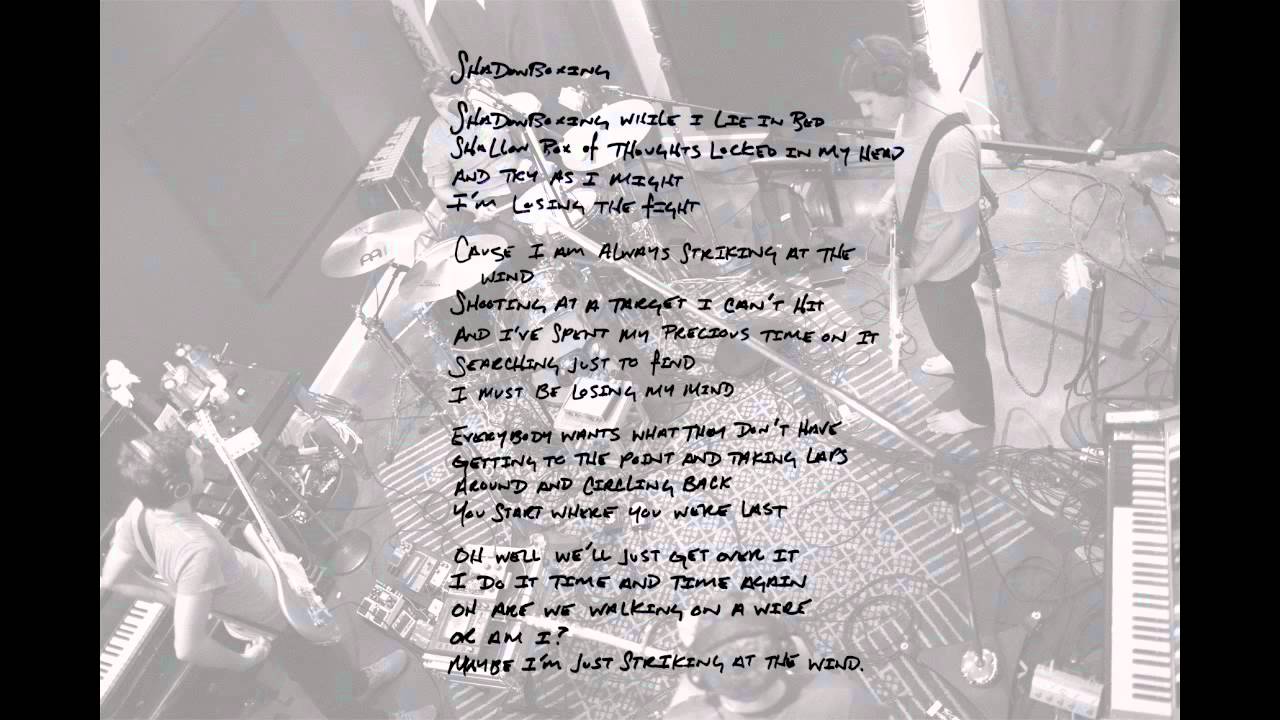 SHADOWBOXING
SHADOWBOXING WHILE I LIE IN BED
SHALLOW BOX OF THOUGHTS LOCKED IN MY HEAD
AND TRY AS I MIGHT
I'M LOSING THE FIGHT
CAUSE I AM ALWAYS STRIKING AT THE
WIND
SHOOTING AT A TARGET I CAN'T HIT
AND I'VE SPENT MY PRECIOUS TIME ON IT
SEARCHING JUST TO FIND
I MUST BE LOSING MY MIND
EVERYBODY WANTS WHAT THEY DON'T HAVE
GETTING TO THE POINT AND TAKING LAPS
AROUND AND CIRCLING BACK
YOU START WHERE YOU WERE LAST
OH WELL WE'LL JUST GET OVER IT
I DO IT TIME AND TIME AGAIN
OH ARE WE WALKING ON A WIRE
OR AM I?
MAYBE I'M JUST STRIKING AT THE WIND.